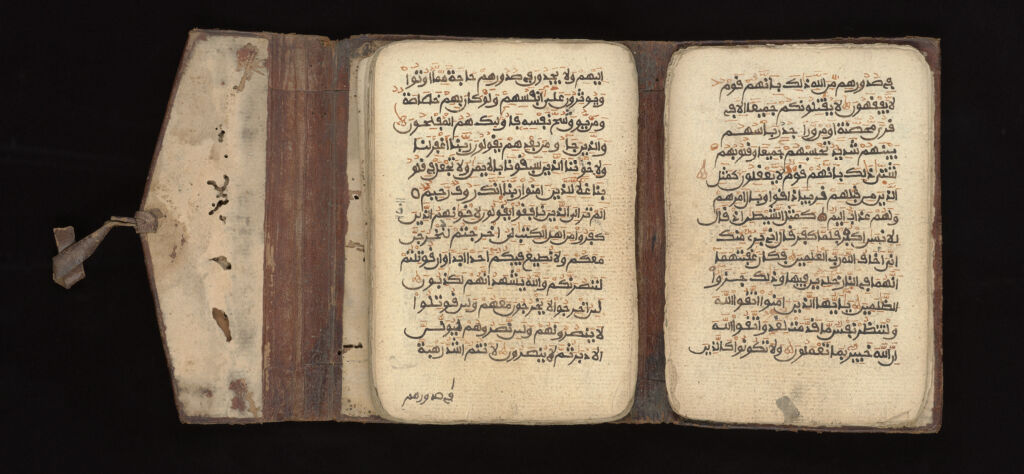 اليهم ولا يجدون في صدورهم حاجة مما اوتوا
ويوثرون على انفسهم ولو كان بهم خصاصة
ومن يوق شح نفسه فاوليك هم المفلحون
والذين جاو من بعدهم يقولون ربنا اغفر لنا
ولاخوننا الذين سبقونا بالايمن ولا تجعل في قلو
بنا غلا للذين امنوا ربنا انك روف رحيم
الم تر الى الذين نافقوا يقولون لاخونهم الذين
كفروا من اهل الكتب لين اخرجتم لنخرجن
معكم ولا نطيع فيكم احدا ابدا وان قوتلتم
لننصرنكم والله يشهد انهم لكذبون
لين اخرجوا لا يخرجون معهم ولين قوتلوا
لا ينصرونهم ولين نصروهم ليولن
الادبر ثم لا ينصرون لانتم اشد رهبة
في صدورهم
في صدورهم من الله ذلك بانهم قوم
لا يفقهون لا يقتلونكم جميعا الا في
قرى محصنة او من ورا جدر باسهم
بينهم شديد تحسبهم جميعا وقلوبهم
شتى ذلك بانهم قوم لا يعقلون كمثل
الذين من قبلهم قريبا ذاقوا وبال امرهم
ولهم عذاب اليم كمثل الشيطن اذ قال
للانسن اكفر فلما كفر قال اني بري منك
اني اخاف الله رب العلمين فكان عقبتهما
انهما في النار خلدين فيها وذلك جزوا
الظلمين يايها الذين امنوا اتقوا الله
ولتنظر نفس ما قدمت لغد واتقوا الله
ان الله خبير بما تعملون ولا تكونوا كالذين